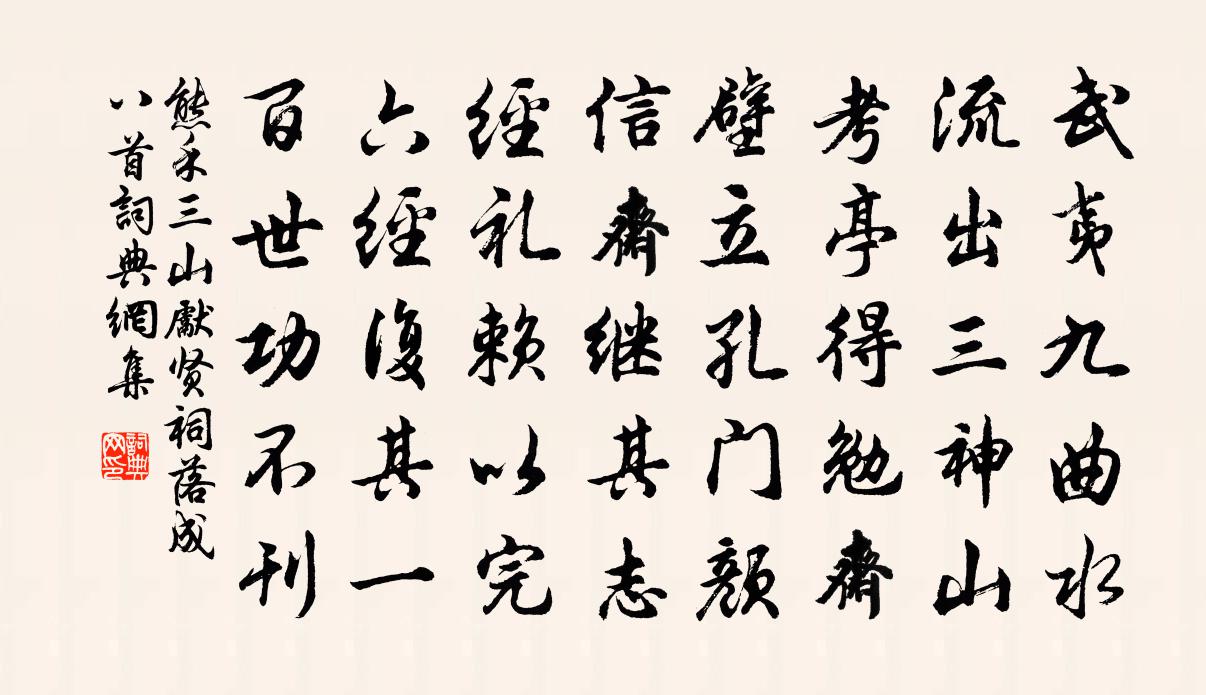 武夷九曲水
流出三神山
考亭得勉齋
壁立孔门颜
信齋继其志
經礼赖以完
六經復其一
百世功不刊
熊禾三山獻贤祠落成
八首詞典網集
詞典网印